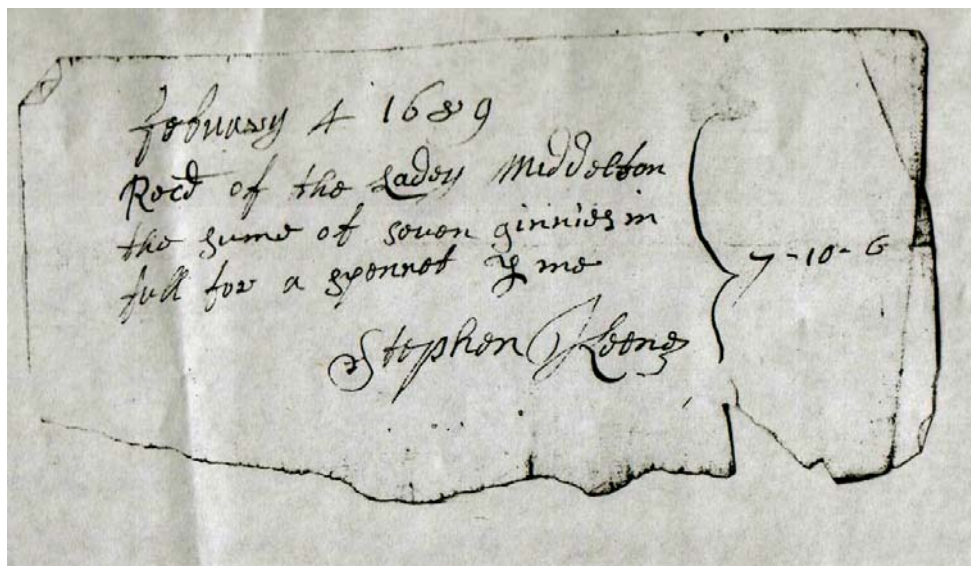 febuary 4 1689
Recd of the Ladey Middelton
the sume of seven ginnies in
full for a spennet ꝑ me
7-10-6
Stephen Keene